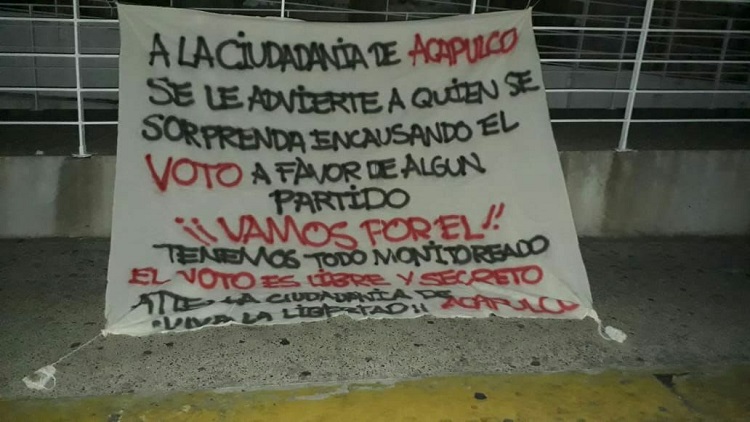 A LA CIUDADANIA DE ACAPULCO
SE LE ADVIERTE A QUIEN SE
SORPRENDA ENCAUSANDO EL
VOTO A FAVOR DE ALGUN
PARTIDO
¡¡VAMOS POR EL!!
TENEMOS TODO MONITOREADO
EL VOTO ES LIBRE Y SECRETO
ATTE LA CIUDADANIA DE ACAPULCO
¡VIVA LA LIBERTAD!!